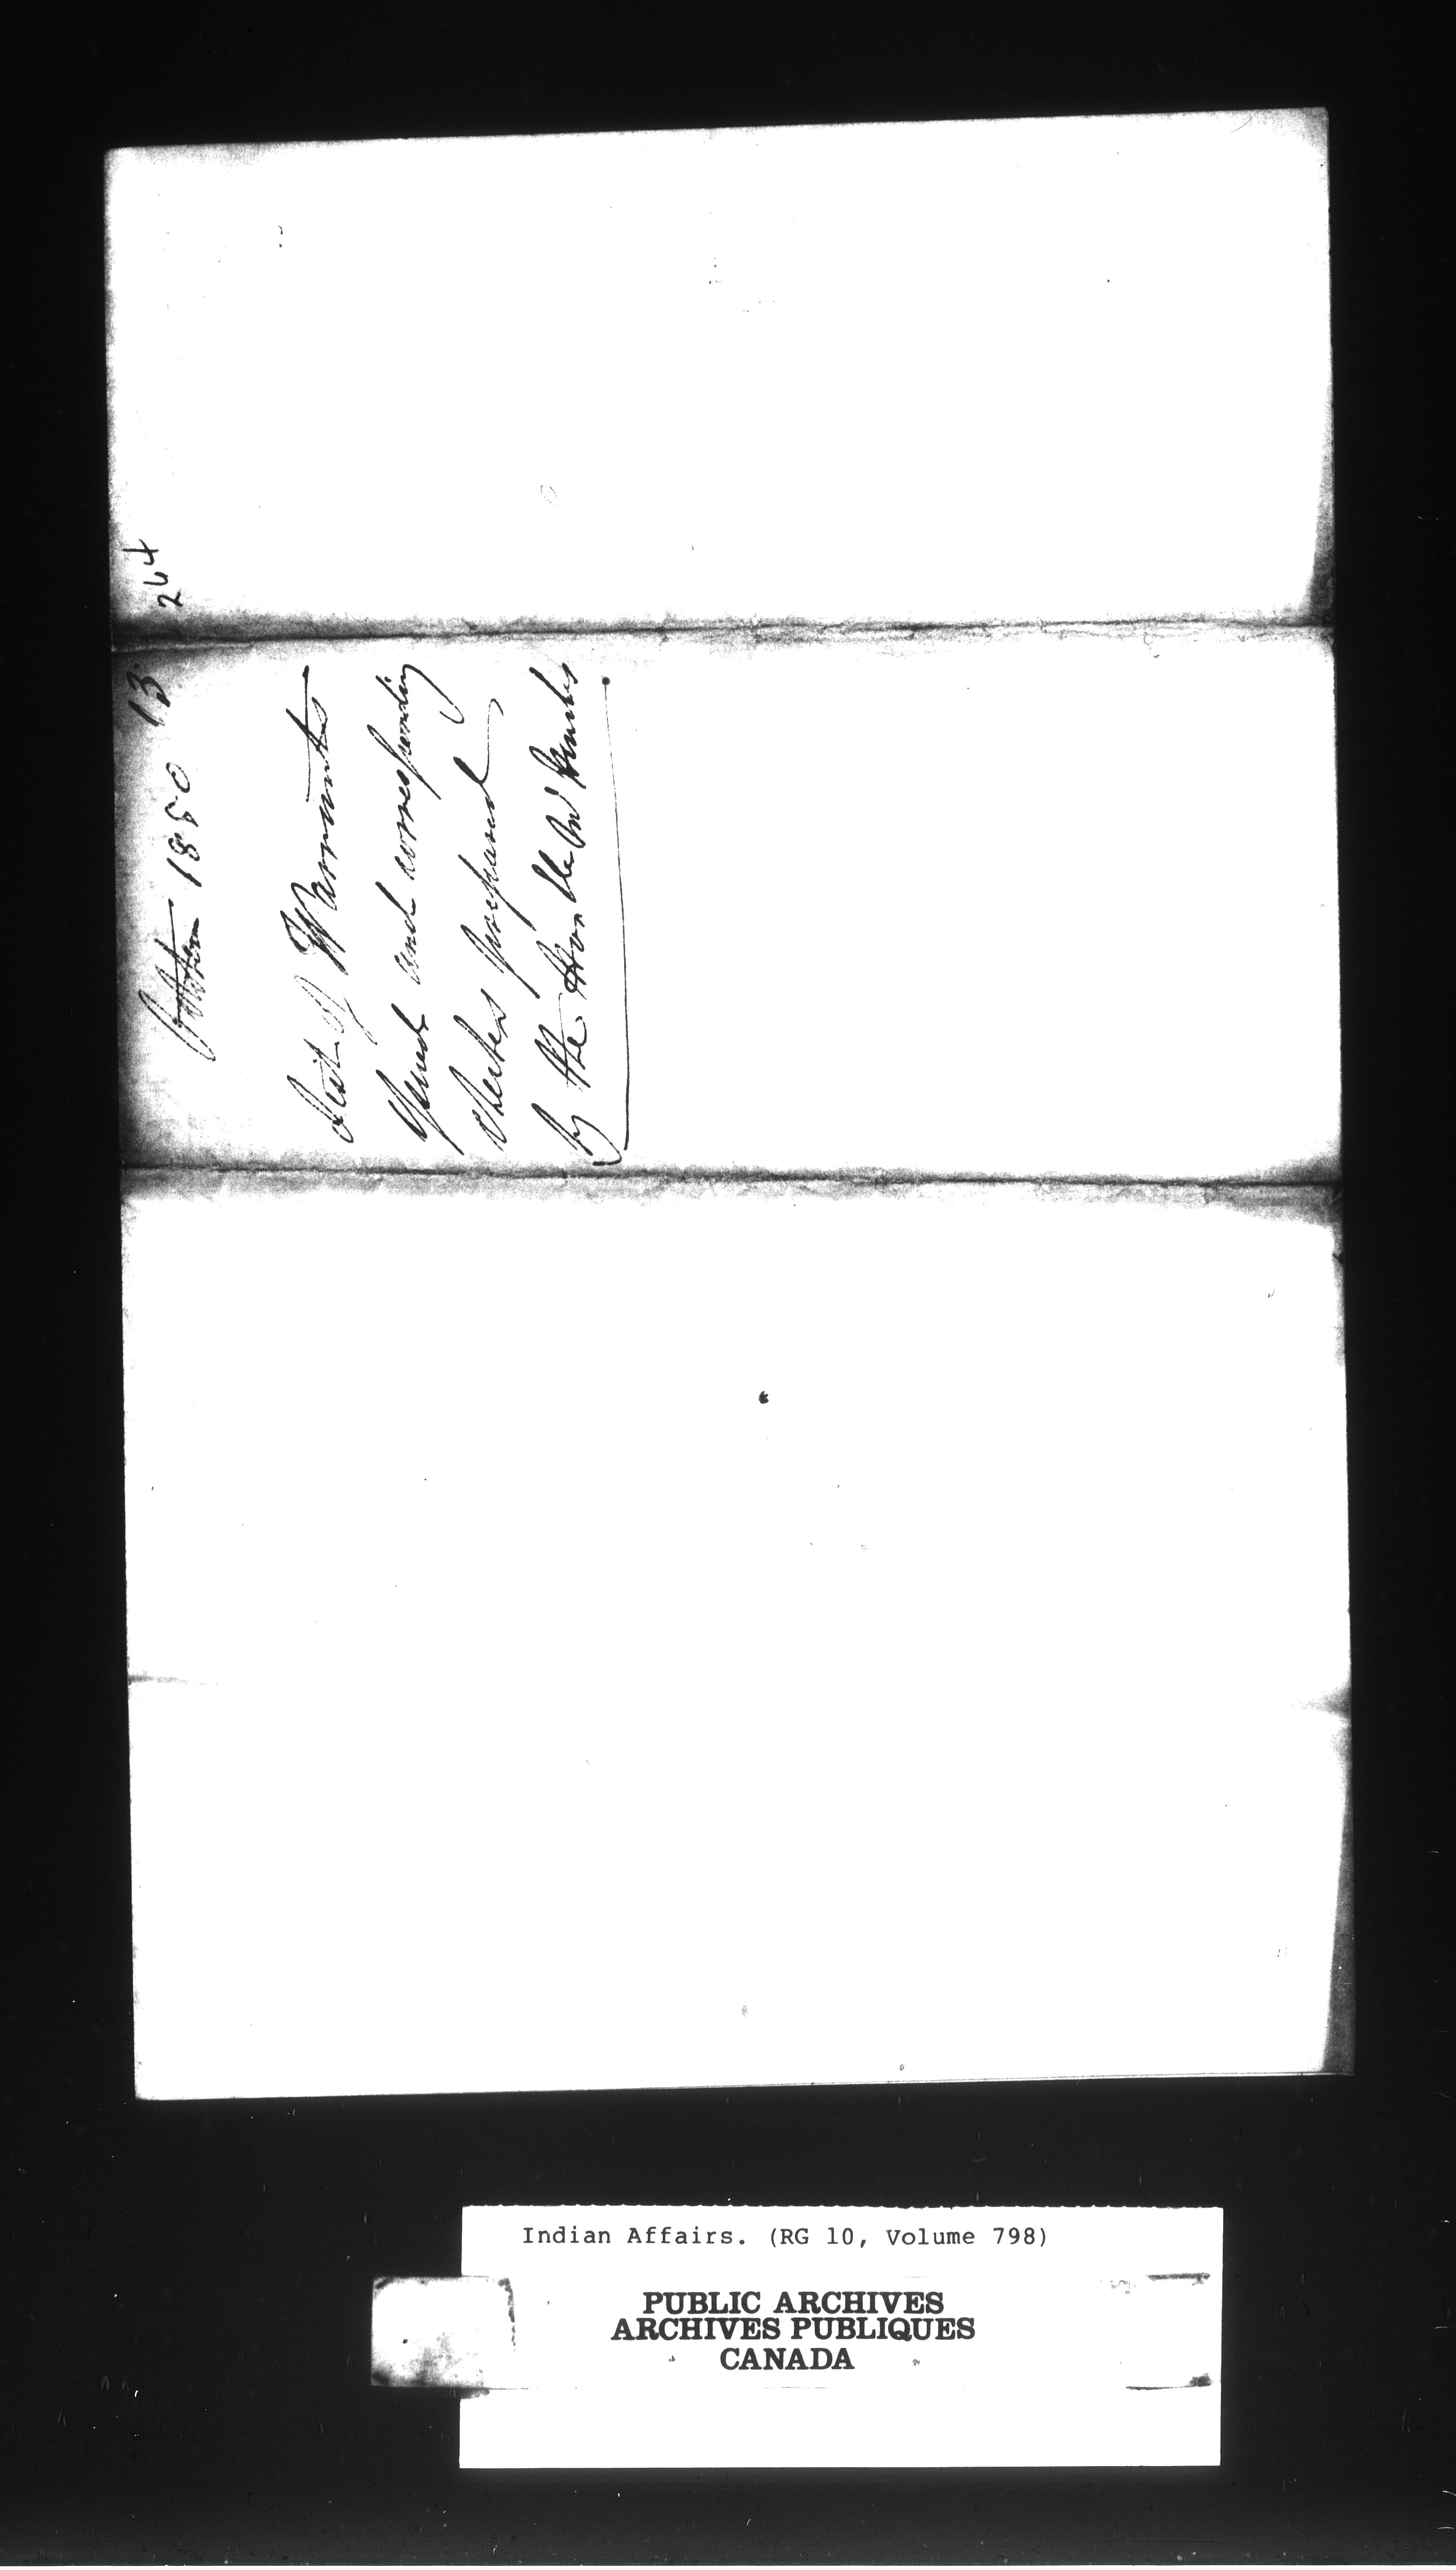 264
October 1850 13
List of Warrants
issued and corresponding
checks prepared
by the Honble
Indian Affairs. (RG 10, Volume 798)
PUBLIC ARCHIVES
ARCHIVES PUBLIQUES
CANADA